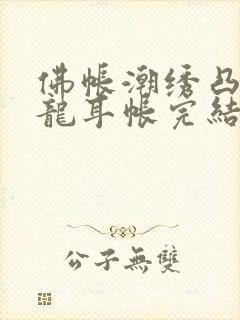 佛帐潮绣凸
龍耳帐完結
公子無雙